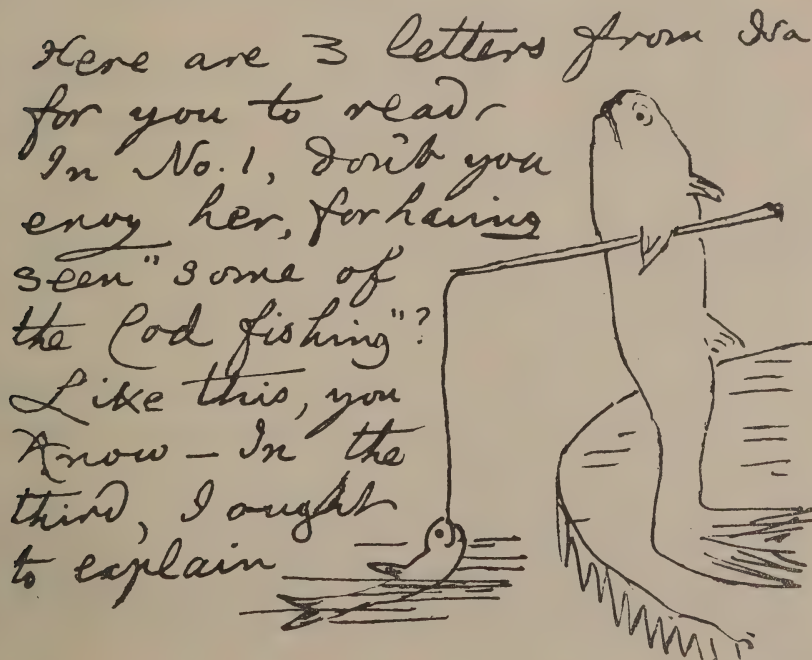 Here are 3 letters from Iva
for you to read.
In No. 1, don't you
envy her, for having
seen "some of
the Cod fishing"?
Like this, you
know — In the
third, I ought
to explain